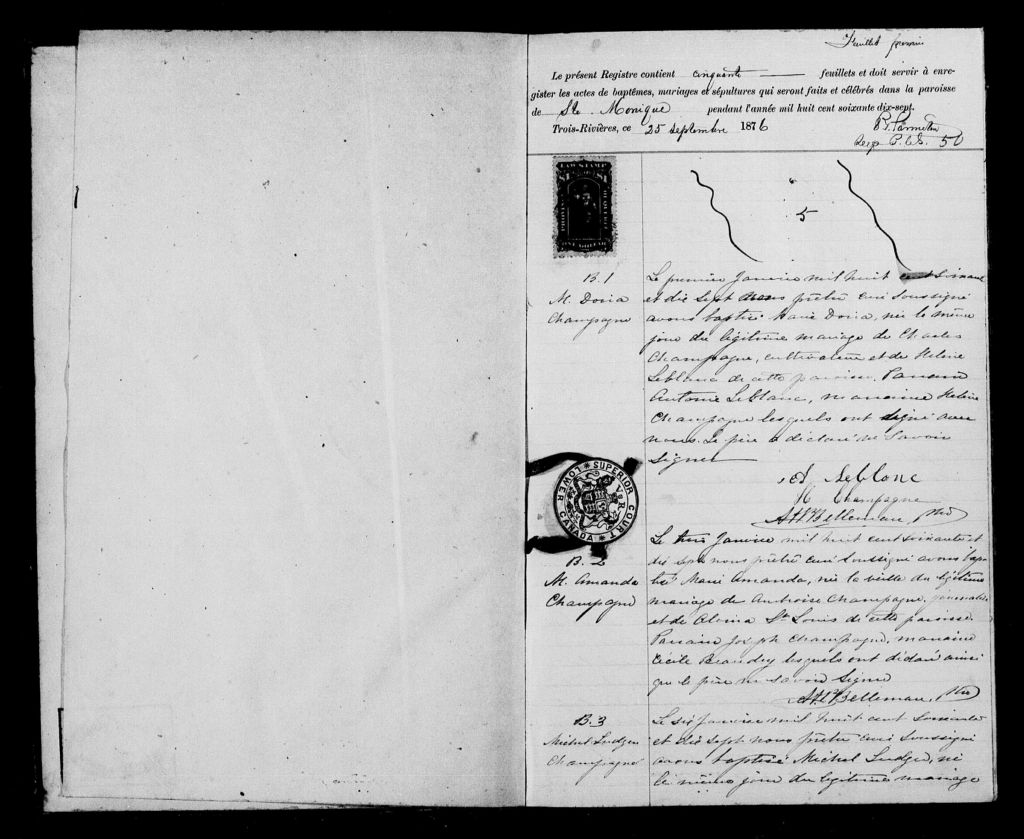 Feuillet premier
Le présent Registre contient cinquante feuillets et doit servir à enre-
gister les actes de baptêmes, mariages et sépultures qui seront faits et célébrés dans la paroisse
de Ste. Monique pendant l'année mil huit cent soixante dix-sept.
Trois-Rivières, ce 25 septembre 1876
P. C. S. 50
LAW STAMP
PROVINCE OF QUEBEC
ONE DOLLAR
5
B. 1
M. Doria
Champagne
Le premier Janvier mil huit cent soixante
et dix sept nous prêtre curé soussigné
avons baptisé Marie Doria, née le même
jour du légitime mariage de Charles
Champagne, cultivateur et de Helène
Leblanc de cette paroisse. Parrain
Antoine Leblanc, marraine Helène
Champagne lesquels ont signé avec
nous. Le père a déclaré ne savoir
signer
A Leblanc
H. Champagne
Belleman, Ptre
SUPERIOR COURT
LOWER CANADA
V R
B. 2
M. Amanda
Champagne
Le trois Janvier mil huit cent soixante et
dix sept nous prêtre curé soussigné avons bap-
tisé Marie Amanda, née la veille du légitime
mariage de Ambroise Champagne, journalier
et de St Louis de cette paroisse
Parrain Joseph Champagne, marraine
Cécile Beaudry lesquels ont déclaré ainsi
que le père ne savoir signer
Belleman, Ptre
B. 3
Michel Ludger
Champagne
Le six Janvier mil huit cent soixante
et dix sept nous prêtre curé soussigné
avons baptisé Michel Ludger, né
le même jour du légitime mariage